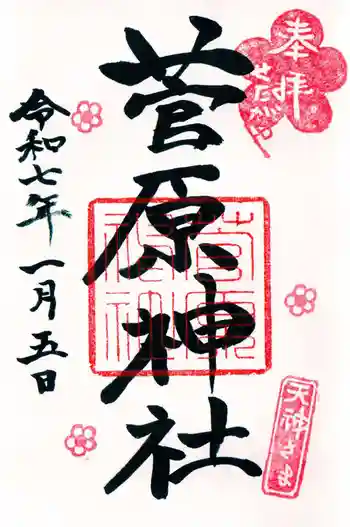 奉拝
せたがや
菅原神社
菅原神社
天神さま
令和七年一月五日